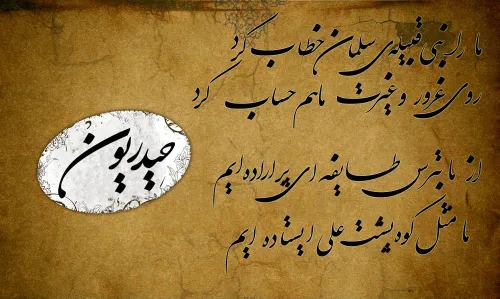 ما را نبی قبیله‌ی سلمان خطاب کرد
روی غرور و غیرت ما هم حساب کرد
از ما بترس طایفه ای پر اراده ایم
ما مثل کوه پشت علی ایستاده ایم
حیدریون